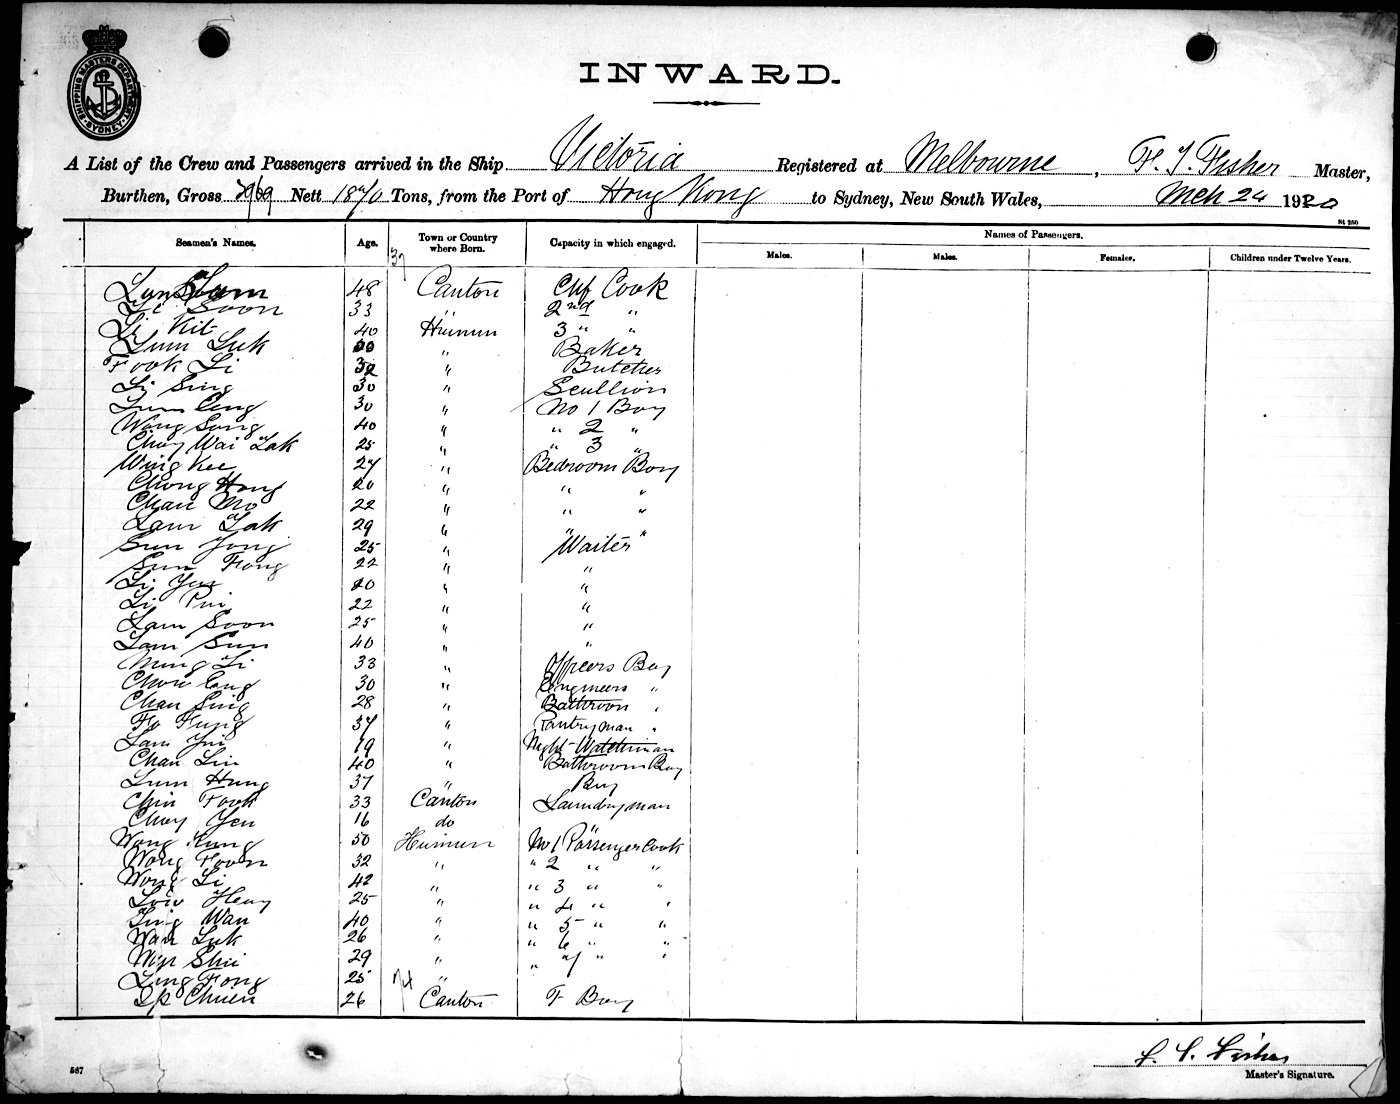 SHIPPING MASTERS DEPARTMENT
SYDNEY
INWARD.
A List of the Crew and Passengers arrived in the Ship Victoria Registered at Melbourne, F. J. Fisher Master,
Burthen, Gross 2969 Nett 1870 Tons, from the Port of Hong Kong to Sydney, New South Wales, Mch 24 1920
St 750
Seamen's Names. Age. Town or Country where Born. Capacity in which engaged. Names of Passengers.
Males. Males. Females. Children under Twelve Years.
37
Lum 48 Canton Chf Cook
Li Soon 33 " 2nd "
Li Kit 40 3 " "
Lum Luk 30 " Baker
Fook Li 32 " Butcher
Li Sing 30 " Scullion
Lum Cong 30 " No 1 Boy
Wong Song 40 " " 2 "
Choy Wai Lak 25 " " 3 "
Wing Kee 27 " Bedroom Boy
Chong Hong 20 " " "
Chan Mo 22 " " "
Lam Lak 29 " " "
Sun Yong 25 " Waiter
Sun Fong 22 " "
Li Yun 20 " "
Li Pui 22 " "
Lam Soon 25 " "
Lam Sun 40 " "
Ming Li 33 " Officers Boy
Chow Cong 30 " Engineers "
Chan Sing 28 " Bathroom "
Fo Fung 37 " Pantryman "
Lam Yui 19 " Night-Watchman
Chan Lin 40 " Bathroom Boy
Lum Hung 37 " Boy
Chin Fook 33 Canton Laundryman
Choy Yen 16 do "
Wong Kung 50 No 1 Passenger Cook
Wong Foon 32 " " 2 " "
Wong Li 42 " " 3 " "
Low Heng 25 " " 4 " "
Ling Wan 40 " " 5 " "
Wan Luk 26 " " 6 " "
Wan Shii 29 " " 7 " "
Ling Fong 25 "
74
Ip Chuen 26 Canton F Boy
Master's Signature.
587